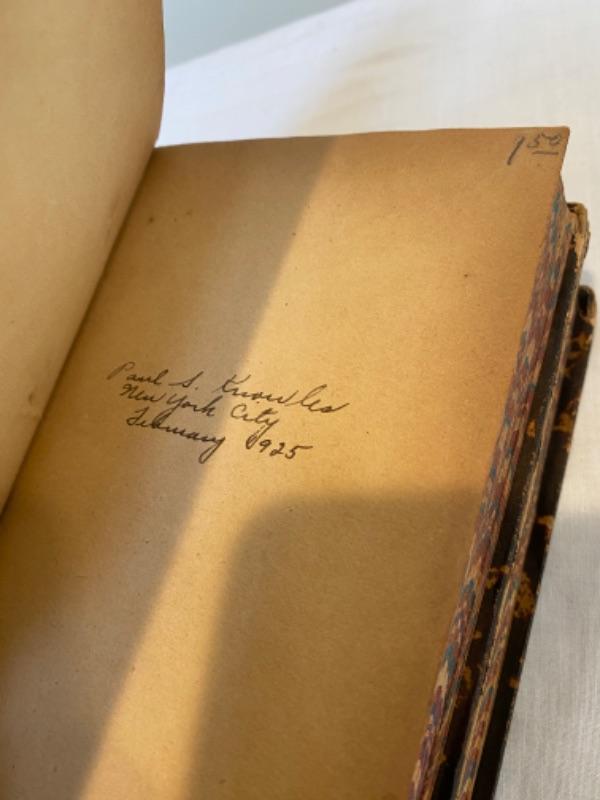 1 50
Paul S. Knowles
New York City
February 1925